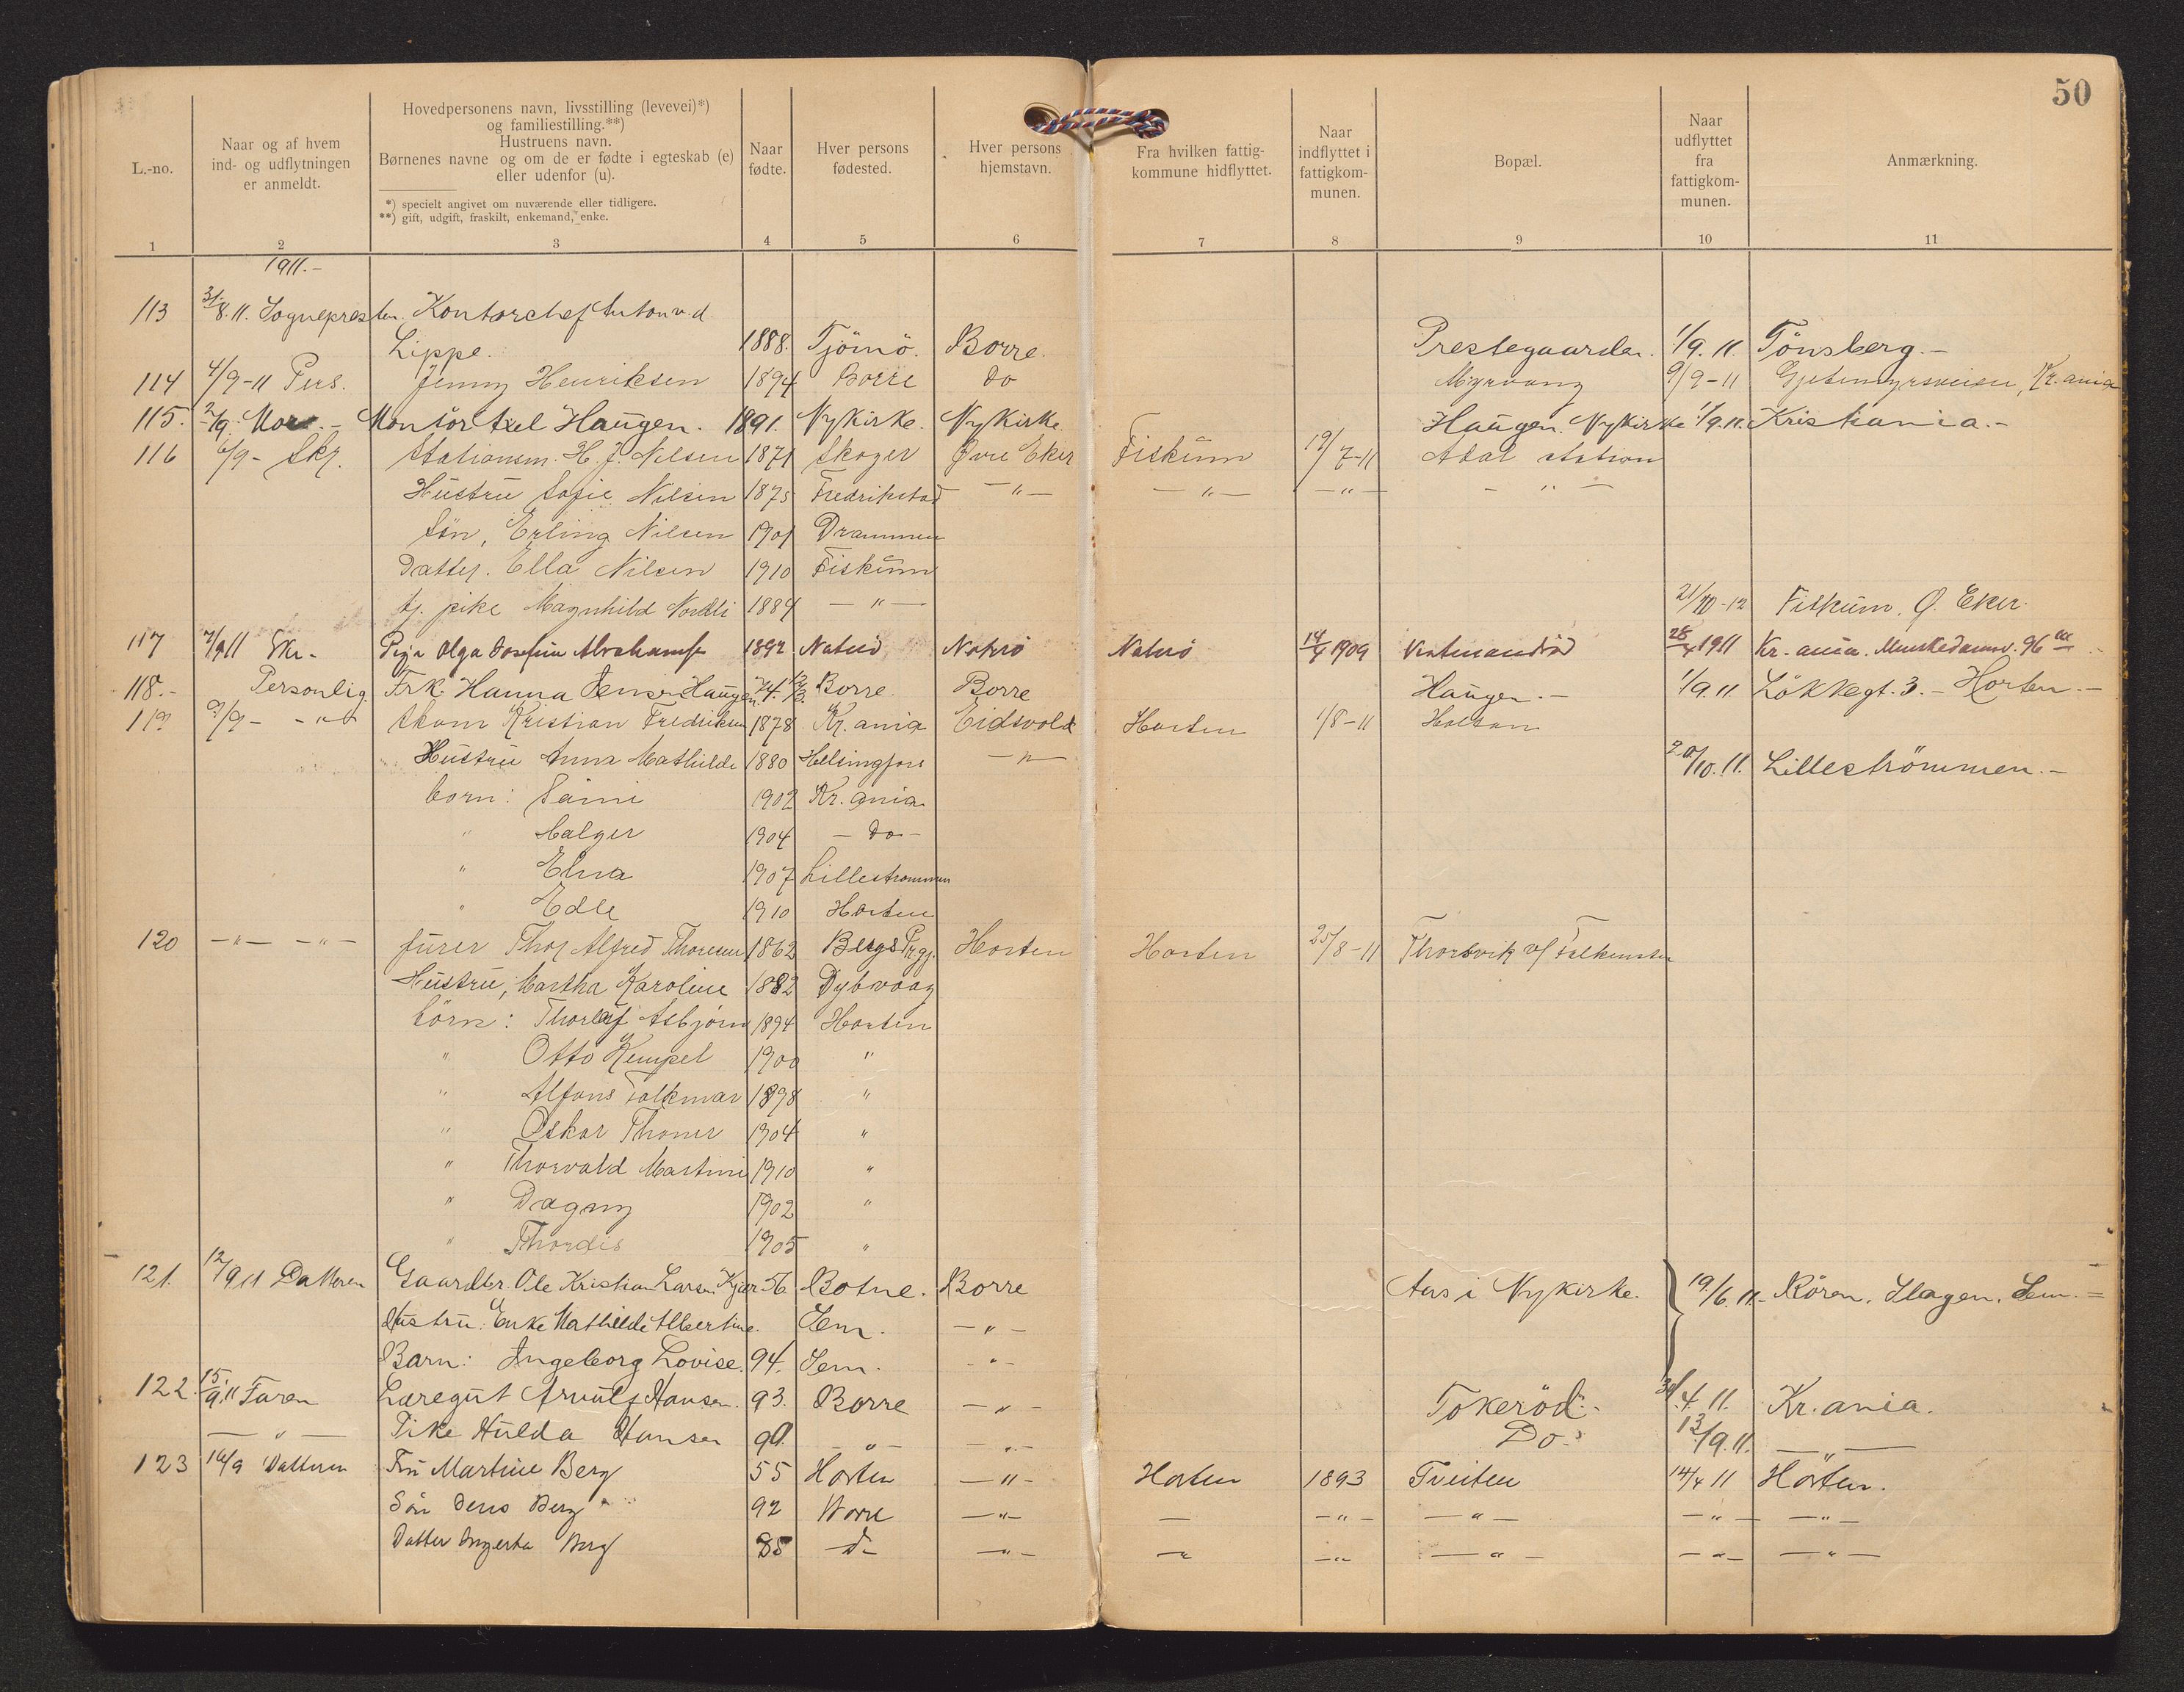 50
L.-no.
Naar og af hvem ind- og udflytningen er anmeldt.
Hovedpersonens navn, livsstilling (levevei)*) og familiestilling.**) Hustruens navn. Børnenes navne og om de er fødte i egteskab (e) eller udenfor (u).
*) specielt angivet om nuværende eller tidligere.
**) gift, udgift, fraskilt, enkemand, enke.
Naar fødte.
Hver persons fødested.
Hver persons hjemstavn.
Fra hvilken fattigkommune hidflyttet.
Naar indflyttet i fattigkommunen.
Bopæl.
Naar udflyttet fra fattigkommunen.
Anmærkning.
1 2 3 4 5 6 7 8 9 10 11
1911.-
113 31/8.11. Sognepresten. Kontorchef Anton v.d.
Lippe. 1888. Tjömö. Borre. Prestegaarden. 1/9.11. Tönsberg.-
114 4/9-11 Pers. Jenny Henriksen 1894 Borre Do Myrvang 9/9-11 Gjetemyrsveien, Kr.ania
115. 2/9. Mor.- Montör Axel Haugen. 1891. Nykirke. Nykirke. Haugen. Nykirke 1/9.11. Kristiania.-
116 6/9- Skr. Stationsm. H. J. Nilsen 1871 Skoger Øvre Eker Fiskum 19/7-11 Adal station
Hustru Sofie Nilsen 1875 Fredrikstad -"- -"- -"- -"-
Sön, Erling Nilsen 1901 Drammen
Datter. Ella Nilsen 1910 Fiskum
tj. pike Magnhild Nordli 1889 -"- 21/10-12 Fiskum, Ö. Eker.
117 7/9 11 Skr.- Pige Olga Josefine Abrahamsen 1892 Nøterö Nøterö Nøterö 14/4 1909 28/4 1911 Kr.ania. Munkedamsv. 96
118.- Personlig. Frk. Hanna Jensen Haugen. 74. 12/3. Borre Borre Haugen.- 1/9.11. Lökkegt. 3.- Horten.-
119 9/9- -"- Skom Kristian Fredriksen 1878 Kr.ania Eidsvold Horten 1/8-11 Holtan
Hustru Anna Mathilde 1880 Helsingfors -"- 20/10.11. Lilleströmmen.-
born: Saimi 1902 Kr.ania
" Holger 1904 - Do -
" Elna 1907 Lillestrommen
" Edle 1910 Horten
120 -"- -"- furer Thor Alfred Thoresen 1862 Bergs Prgj. Horten Horten 25/8-11 Thorsvik v/ Falkensten
Hustru, Martha Karoline 1882 Dybvaag
börn: Thorleif Asbjörn 1894 Horten
" Otto Kempel 1900 "
" Alfons Folkmar 1898 "
" Oskar Thomer 1904 "
" Thorvald Martini 1910 "
" Dagny 1902 "
" Thordis 1905 "
121. 12/9 11 Datteren Gaardbr. Ole Kristian Larsen Kjær 56 Botne. Borre Aas i Nykirke. 19/6.11.- Rören, Slagen, Sem.=
Hustru: Enke Mathilde Albertine. Sem. -"-
Barn: Ingeborg Lovise. 94. Sem. -"-
122. 15./9.11 Faren Læregut Arnulf Hansen. 93. Borre -"- Tokeröd.- 30/4.11. Kr.ania.
-"- Pike Hulda Hansen 90. -"- -"- Do. 13/9.11. -"-
123 14/9 Datteren Fru Martine Berg 55 Horten -"- Horten 1893 Tveiten 14/4 11 Horten.
Sön Jens Berg 92 Borre -"- - -"- -"- -"- -"-
Datter Ingerta Berg 85 -d- -"- -"- -"- -"- -"- -"-